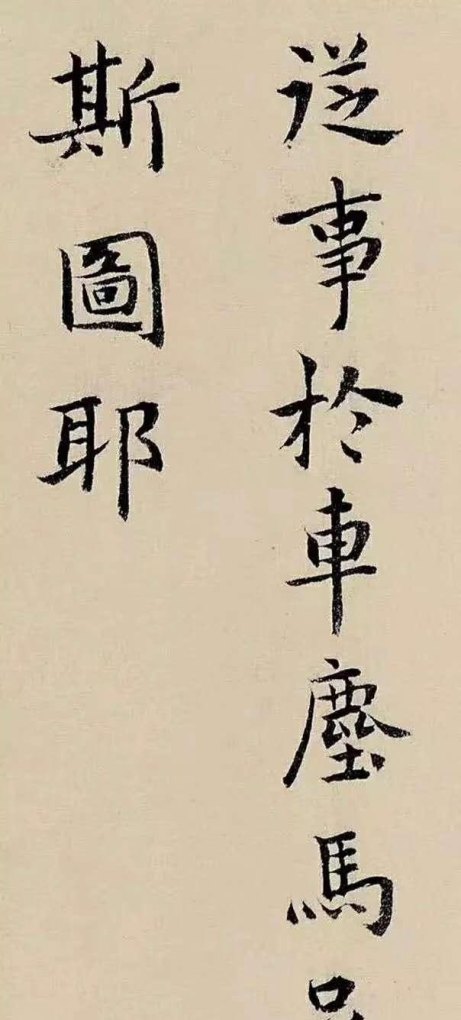 從事於車塵馬
斯圖耶